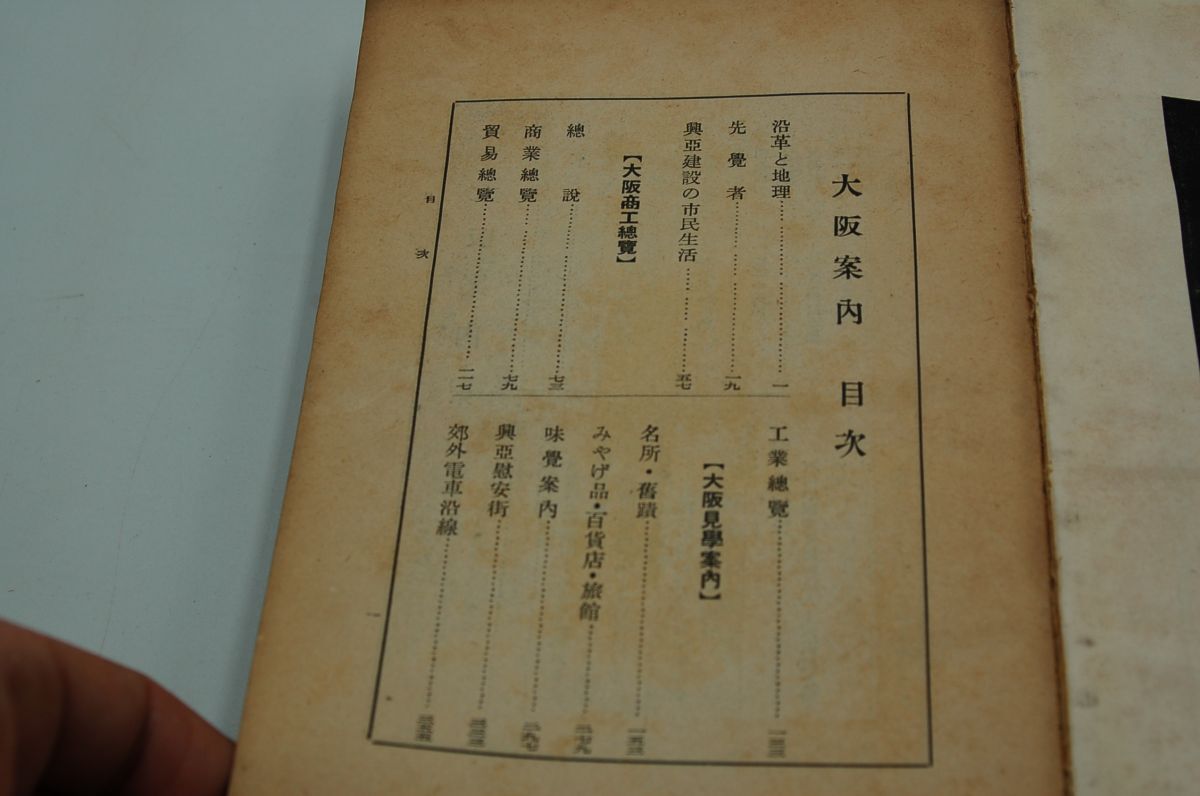 大阪案內 目次
沿革と地理 一
先覺者 一九
興亞建設の市民生活 五七
【大阪商工總覽】
總說 七三
商業總覽 七九
貿易總覽 一一七
工業總覽 一三三
【大阪見學案內】
名所・舊蹟
みやげ品・百貨店・旅館 二七九
味覺案內 二九七
興亞慰安街
郊外電車沿線
目次
一